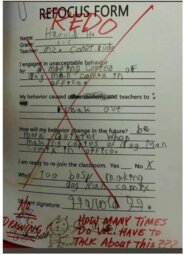 REFOCUS FORM
REDO
Name: Harold H
Grade:
Teacher:
I engaged in unacceptable behavior
by: making copies of
dog man comix in
office
My behavior caused other students and teachers to
freak out
How will my behavior change in the future? be
more careful when
making copies of dog Man
comix in office
I am ready to re-join the classroom. Yes No X
Why? Too busy making
dog man comix
signature:
NO
DRAWING
HOW MANY TIMES
DO WE HAVE TO
TALK ABOUT THIS???